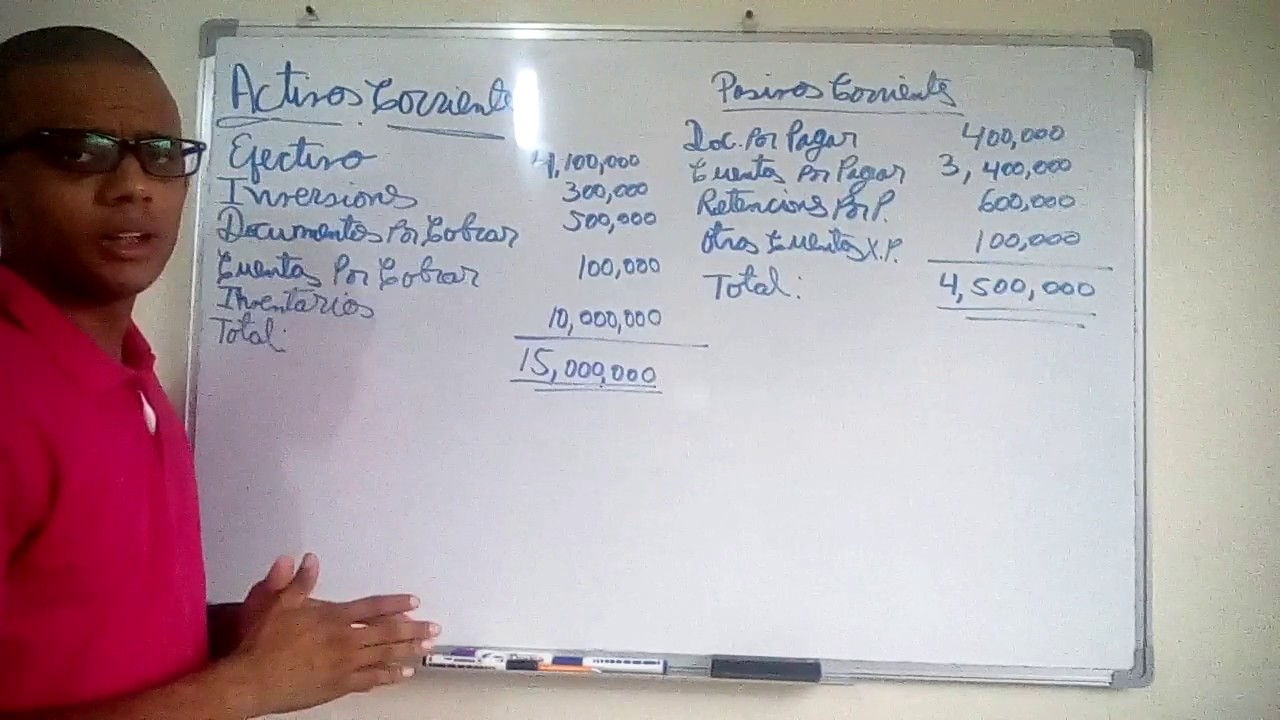 Activos Corriente
Efectivo 4,100,000
Inversions 300,000
Documentos Por Cobrar 500,000
Cuentas Por Cobrar 100,000
Inventarios 10,000,000
Total: 15,000,000
Pasivos Corrientes
Doc. Por Pagar 400,000
Cuentas Por Pagar 3,400,000
Retencions Por P. 600,000
Otras Cuentas X.P. 100,000
Total: 4,500,000